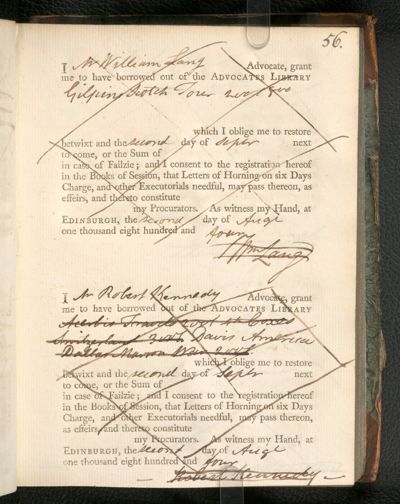 56.
I Mr William Lang Advocate, grant
me to have borrowed out of the ADVOCATES LIBRARY
Gilpins Scotch Tour 2 vol 8vo
which I oblige me to restore
betwixt and the second day of Sepr next
to come, or the Sum of
in case of Failzie; and I consent to the registration hereof
in the Books of Session, that Letters of Horning on six Days
Charge, and other Executorials needful, may pass thereon, as
effeirs, and thereto constitute
my Procurators. As witness my Hand, at
EDINBURGH, the second day of Augt
one thousand eight hundred and four
Wm Lang
I Mr Robert Kennedy Advocate, grant
me to have borrowed out of the ADVOCATES LIBRARY
Acerbis Travels 2 vol 4to Coxes
Switzerland 2 vol Davis America
Dallas Maroon War 2 vols
which I oblige me to restore
betwixt and the second day of Sepr next
to come, or the Sum of
in case of Failzie; and I consent to the registration hereof
in the Books of Session, that Letters of Horning on six Days
Charge, and other Executorials needful, may pass thereon,
as effeirs, and thereto constitute
my Procurators. As witness my Hand, at
EDINBURGH, the second day of Augt
one thousand eight hundred and four
Robert Kennedy